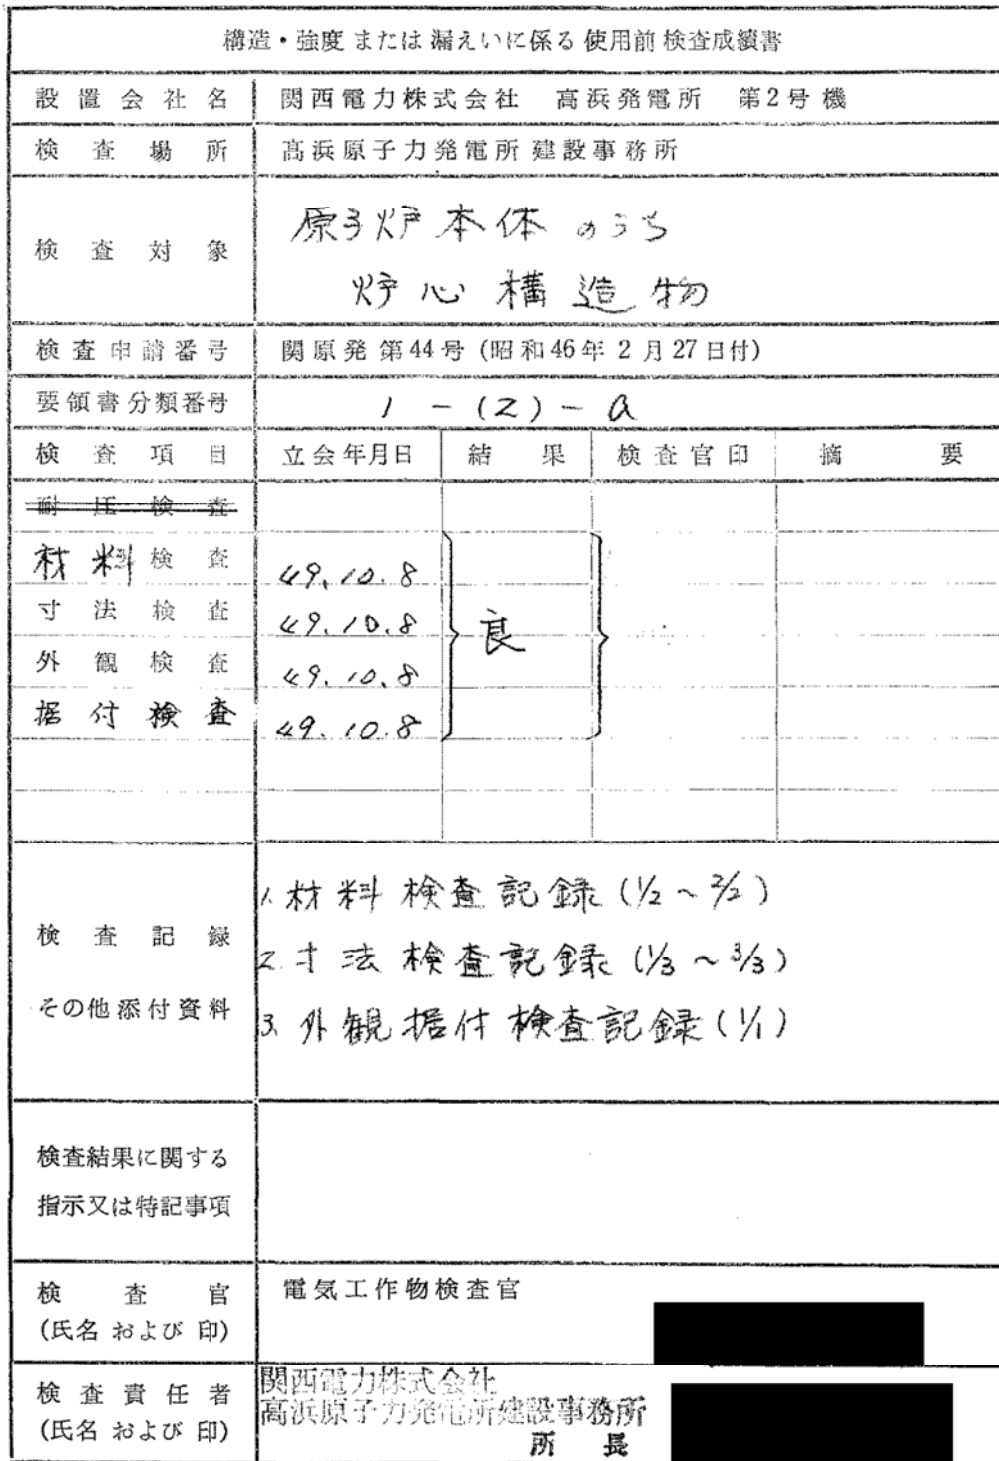 構造・強度 または 漏えいに係る 使用前 検査成績書
設置会社名 関西電力株式会社 高浜発電所 第2号機
検査場所 高浜原子力発電所 建設事務所
検査対象 原子炉本体 のうち
炉心構造物
検査申請番号 関原発第44号 (昭和46年2月27日付)
要領書分類番号 1-(2)-a
検査項目 立会年月日 結果 検査官印 摘要
耐圧検査
材料検査 49.10.8
寸法検査 49.10.8
良
外観検査 49.10.8
据付検査 49.10.8
検査記録
その他添付資料
1. 材料検査記録 (1/2~2/2)
2. 寸法検査記録 (1/3~3/3)
3. 外観据付検査記録 (1/1)
検査結果に関する
指示又は特記事項
検査官
(氏名 および 印)
電気工作物検査官
検査責任者
(氏名 および 印)
関西電力株式会社
高浜原子力発電所建設事務所
所長